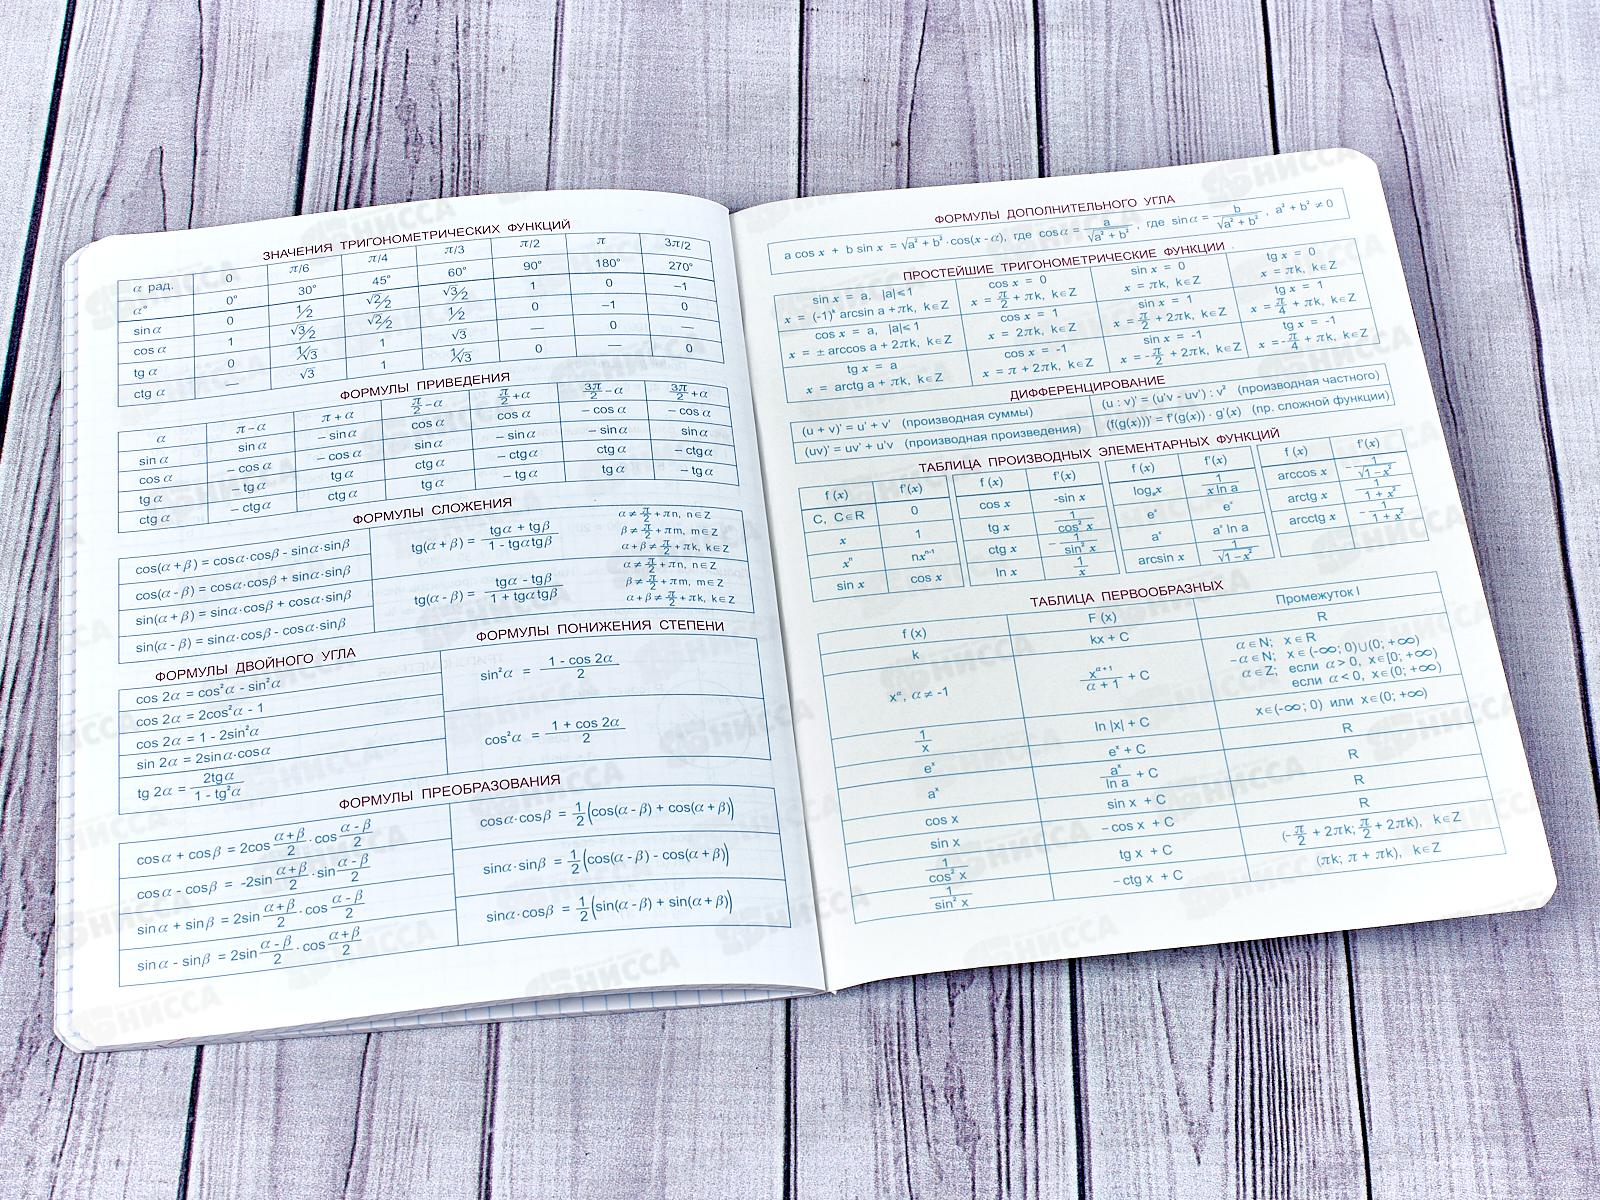 ЗНАЧЕНИЯ ТРИГОНОМЕТРИЧЕСКИХ ФУНКЦИЙ
α рад. 0 π/6 π/4 π/3 π/2 π 3π/2
α° 0° 30° 45° 60° 90° 180° 270°
sin α 0 1/2 √2/2 √3/2 1 0 –1
cos α 1 √3/2 √2/2 1/2 0 –1 0
tg α 0 1/√3 1 √3 — 0 —
ctg α — √3 1 1/√3 0 — 0
ФОРМУЛЫ ПРИВЕДЕНИЯ
α π – α π + α π/2 – α π/2 + α 3π/2 – α 3π/2 + α
sin α sin α – sin α cos α cos α – cos α – cos α
cos α – cos α – cos α sin α – sin α – sin α sin α
tg α – tg α tg α ctg α – ctg α ctg α – ctg α
ctg α – ctg α ctg α tg α – tg α tg α – tg α
ФОРМУЛЫ СЛОЖЕНИЯ
cos(α + β) = cosα·cosβ - sinα·sinβ
cos(α - β) = cosα·cosβ + sinα·sinβ
sin(α + β) = sinα·cosβ + cosα·sinβ
sin(α - β) = sinα·cosβ - cosα·sinβ
tg(α + β) = (tgα + tgβ)/(1 - tgα tgβ)
α ≠ π/2 + πn, n∈Z
β ≠ π/2 + πm, m∈Z
α + β ≠ π/2 + πk, k∈Z
tg(α - β) = (tgα - tgβ)/(1 + tgα tgβ)
α ≠ π/2 + πn, n∈Z
β ≠ π/2 + πm, m∈Z
α + β ≠ π/2 + πk, k∈Z
ФОРМУЛЫ ДВОЙНОГО УГЛА
cos 2α = cos²α - sin²α
cos 2α = 2cos²α - 1
cos 2α = 1 - 2sin²α
sin 2α = 2sinα·cosα
tg 2α = 2tg α/(1 - tg²α)
ФОРМУЛЫ ПОНИЖЕНИЯ СТЕПЕНИ
sin²α = (1 - cos 2α)/2
cos²α = (1 + cos 2α)/2
ФОРМУЛЫ ПРЕОБРАЗОВАНИЯ
cosα + cosβ = 2cos (α+β)/2 · cos (α-β)/2
cosα - cosβ = -2sin (α+β)/2 · sin (α-β)/2
sinα + sinβ = 2sin (α+β)/2 · cos (α-β)/2
sinα - sinβ = 2sin (α-β)/2 · cos (α+β)/2
cosα·cosβ = 1/2 (cos(α - β) + cos(α + β))
sinα·sinβ = 1/2 (cos(α - β) - cos(α + β))
sinα·cosβ = 1/2 (sin(α - β) + sin(α + β))
ФОРМУЛЫ ДОПОЛНИТЕЛЬНОГО УГЛА
a cos x + b sin x = √(a² + b²)·cos(x - α), где cosα = a/√(a² + b²), где sinα = b/√(a² + b²), a² + b² ≠ 0
ПРОСТЕЙШИЕ ТРИГОНОМЕТРИЧЕСКИЕ ФУНКЦИИ
sin x = a, |a|⩽1
x = (-1)ᵏ arcsin a + πk, k∈Z
cos x = 0
x = π/2 + πk, k∈Z
sin x = 0
x = πk, k∈Z
tg x = 0
x = πk, k∈Z
cos x = a, |a|⩽1
x = ± arccos a + 2πk, k∈Z
cos x = 1
x = 2πk, k∈Z
sin x = 1
x = π/2 + 2πk, k∈Z
tg x = 1
x = π/4 + πk, k∈Z
tg x = a
x = arctg a + πk, k∈Z
cos x = -1
x = π + 2πk, k∈Z
sin x = -1
x = -π/2 + 2πk, k∈Z
tg x = -1
x = -π/4 + πk, k∈Z
ДИФФЕРЕНЦИРОВАНИЕ
(u + v)' = u' + v' (производная суммы) (u : v)' = (u'v - uv') : v² (производная частного)
(uv)' = uv' + u'v (производная произведения) (f(g(x)))' = f'(g(x)) · g'(x) (пр. сложной функции)
ТАБЛИЦА ПРОИЗВОДНЫХ ЭЛЕМЕНТАРНЫХ ФУНКЦИЙ
f (x) f'(x) f (x) f'(x) f (x) f'(x) f (x) f'(x)
C, C∈R 0 cos x -sin x logₐx 1/(x ln a) arccos x -1/√(1 - x²)
x 1 tg x 1/cos² x eˣ eˣ arctg x 1/(1 + x²)
xⁿ nxⁿ⁻¹ ctg x -1/sin² x aˣ aˣ ln a arcctg x -1/(1 + x²)
sin x cos x ln x 1/x arcsin x 1/√(1 - x²)
ТАБЛИЦА ПЕРВООБРАЗНЫХ
f (x) F (x) Промежуток I
k kx + C R
xᵅ, α ≠ -1 xᵅ⁺¹/(α + 1) + C
α∈N; x∈R
-α∈N; x∈(-∞; 0)∪(0; +∞)
α∈Z; если α > 0, x∈[0; +∞)
если α < 0, x∈(0; +∞)
1/x ln |x| + C x∈(-∞; 0) или x∈(0; +∞)
eˣ eˣ + C R
aˣ aˣ/ln a + C R
cos x sin x + C R
sin x – cos x + C R
1/cos² x tg x + C (-π/2 + 2πk; π/2 + 2πk), k∈Z
1/sin² x – ctg x + C (πk; π + πk), k∈Z
НИССА